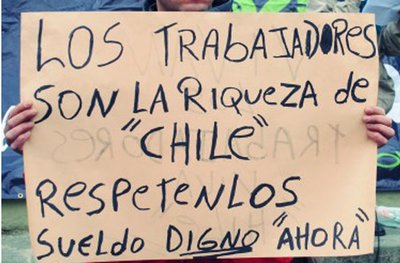 LOS TRABAJADORES
SON LA RIQUEZA de
"CHILE"
RESPETENLOS
SUELDO DIGNO "AHORA"